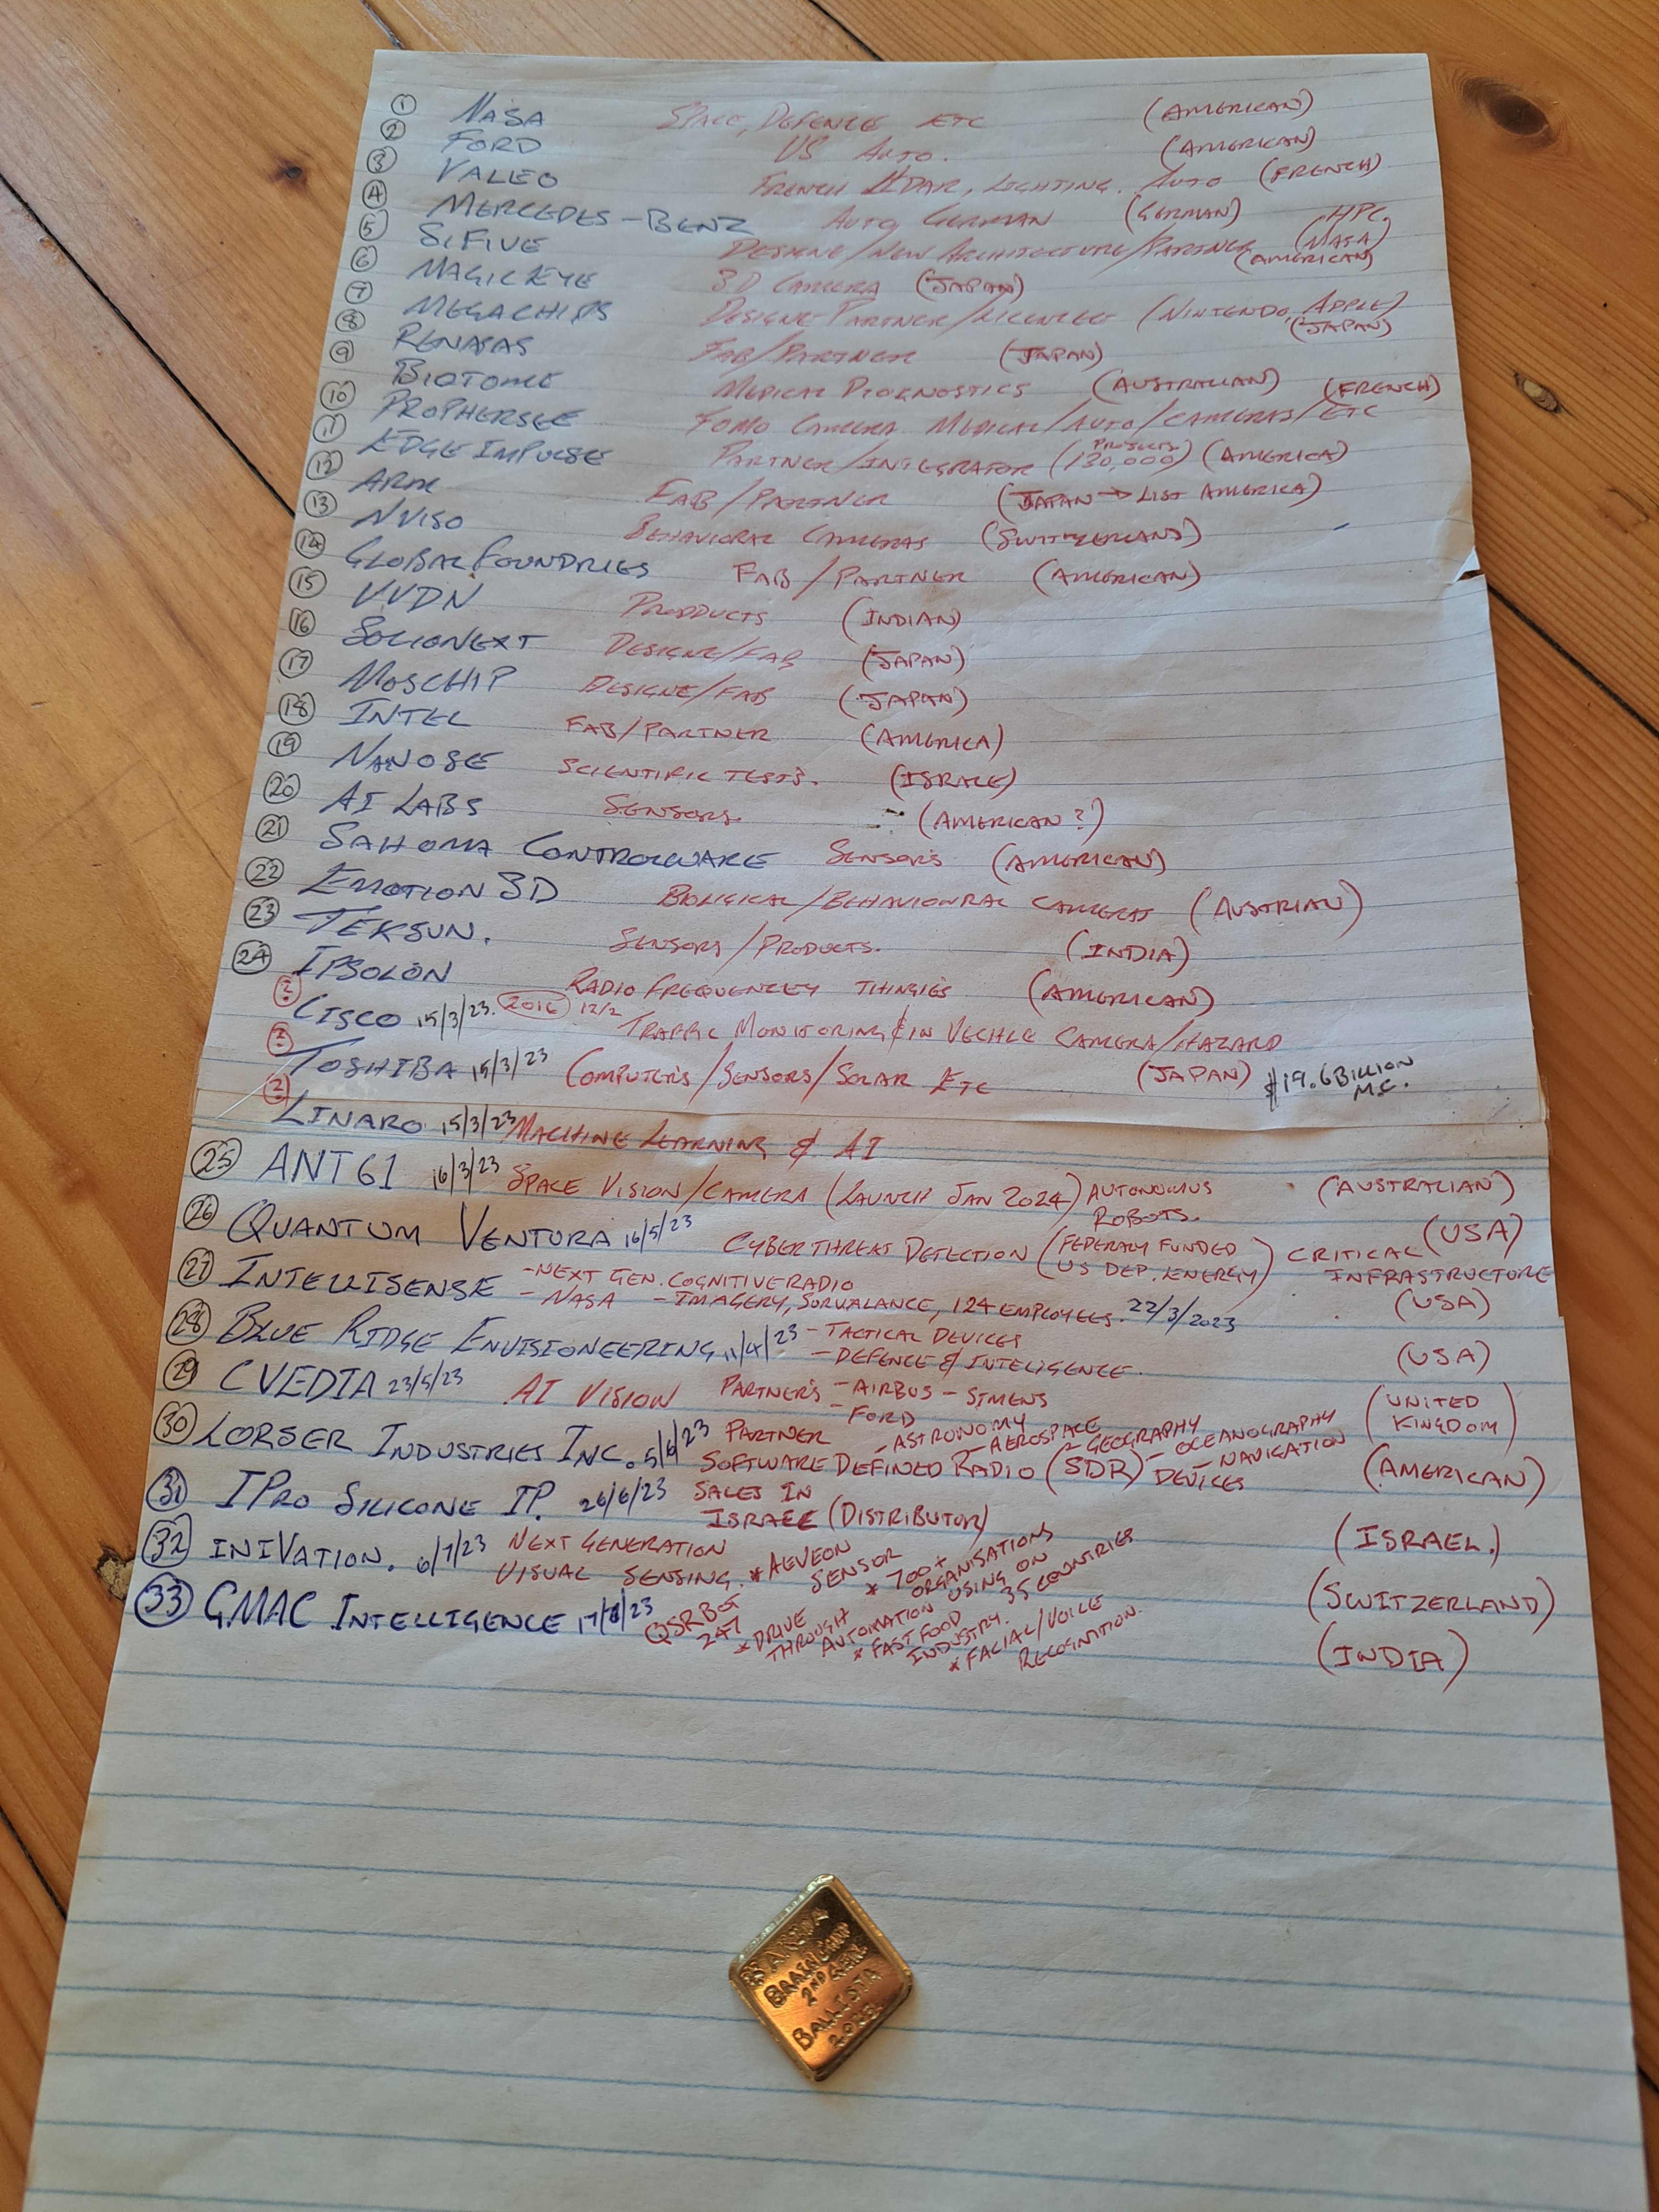 ① NASA SPACE, DEFENCE ETC (AMERICAN)
② FORD US AUTO. (AMERICAN)
③ VALEO FRENCH LIDAR, LIGHTING. AUTO (FRENCH)
④ MERCEDES-BENZ AUTO GERMAN (GERMAN) HPC,
⑤ SIFIVE DESIGNE/NEW ARCHITECTURE/PARTNER (NASA) (AMERICAN)
⑥ MAGIC EYE 3D CAMERA (JAPAN)
⑦ MEGACHIPS DESIGNE PARTNER/LICENCEE (NINTENDO, APPLE) (JAPAN)
⑧ RENASAS FAB/PARTNER (JAPAN)
⑨ BIOTOME MEDICAL DIOGNOSTICS (AUSTRALIAN) (FRENCH)
⑩ PROPHERSEE FOMO CAMERA MEDICAL/AUTO/CAMERAS/ETC
⑪ EDGE IMPULSE PARTNER/INTEGRATOR (PROJECTS 130,000) (AMERICA)
⑫ ARM FAB/PARTNER (JAPAN → LIST AMERICA)
⑬ NVISO BEHAVIORAL CAMERAS (SWITZERLAND)
⑭ GLOBAL FOUNDRIES FAB/PARTNER (AMERICAN)
⑮ VVDN PRODUCTS (INDIAN)
⑯ SOCIONEXT DESIGNE/FAB (JAPAN)
⑰ MOSCHIP DESIGNE/FAB (JAPAN)
⑱ INTEL FAB/PARTNER (AMERICA)
⑲ NANOSE SCIENTIFIC TESTS. (ISRALE)
⑳ AI LABS SENSORS. (AMERICAN?)
㉑ SAHOMA CONTROLWARE SENSORS (AMERICAN)
㉒ EMOTION 3D BIOLIGICAL/BEHAVIONRAL CAMERAS (AUSTRIAN)
㉓ TEKSUN. SENSORS/PRODUCTS. (INDIA)
㉔ IPSOLON RADIO FREQUENCEY THINGIES (AMERICAN)
? CISCO 15/3/23. 2016 12/2 TRAFFIC MONITORING & IN VECHLE CAMERA/HAZARD
? TOSHIBA 15/3/23 COMPUTER'S/SENSORS/SOLAR ETC (JAPAN) $19.6 BILLION M.C.
? LINARO 15/3/23 MACHINE LEARNING & AI
㉕ ANT61 16/3/23 SPACE VISION/CAMERA (LAUNCH JAN 2024) AUTONOMUS ROBOTS. (AUSTRALIAN)
㉖ QUANTUM VENTURA 16/5/23 CYBERTHREAT DETECTION (FEDERALY FUNDED US DEP. ENERGY) CRITICAL INFRASTRUCTURE (USA)
㉗ INTELLISENSE -NEXT GEN. COGNITIVE RADIO
-NASA -IMAGERY, SURVALANCE, 124 EMPLOYEES. 22/3/2023 (USA)
㉘ BLUE RIDGE ENVISIONEERING, 11/4/23 -TACTICAL DEVICES
-DEFENCE & INTELIGENCE. (USA)
㉙ CVEDIA 23/5/23 AI VISION PARTNER'S -AIRBUS -SIMENS
-FORD (UNITED KINGDOM)
㉚ LORSER INDUSTRIES INC. 5/6/23 PARTNER -ASTRONOMY -AEROSPACE -GEOGRAPHY -OCEANOGRAPHY
SOFTWARE DEFINED RADIO (SDR) DEVICES -NAVIGATION (AMERICAN)
㉛ IPRO SILICONE IP. 26/6/23 SALES IN
ISRAEL (DISTRIBUTOR) (ISRAEL.)
㉜ INIVATION. 6/7/23 NEXT GENERATION
VISUAL SENSING. * AEVEON SENSOR * 700+ ORGANISATIONS USING ON 35 COUNTRIES (SWITZERLAND)
㉝ GMAC INTELLIGENCE 17/8/23 QSRBOT 24/7 * DRIVE THROUGH AUTOMATION * FAST FOOD INDUSTRY. * FACIAL/VOICE RECOGNITION. (INDIA)
BRAINCHIP
2ND GEN.
BALLISTA
2023.